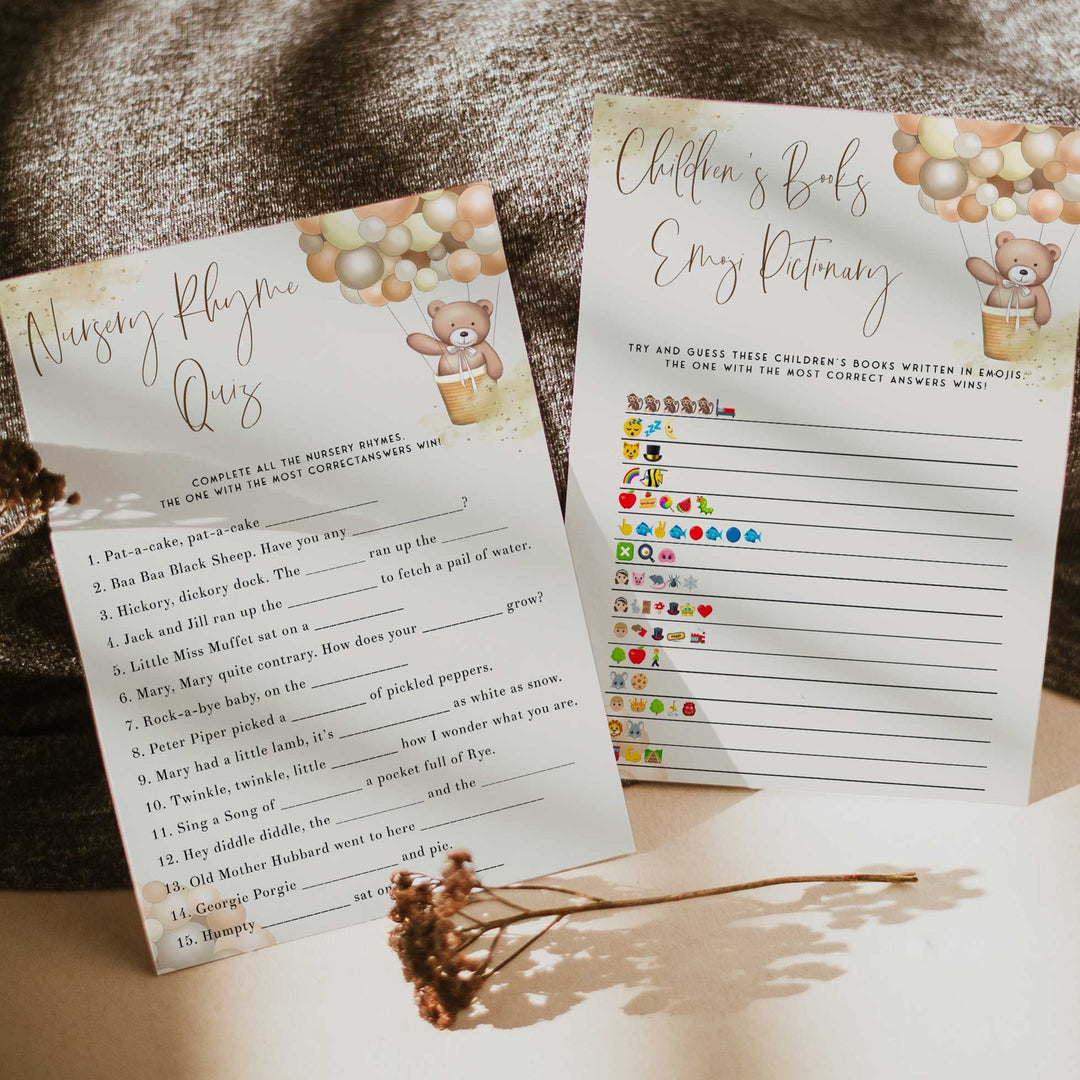 Nursery Rhyme
Quiz
COMPLETE ALL THE NURSERY RHYMES.
THE ONE WITH THE MOST CORRECTANSWERS WIN!
1. Pat-a-cake, pat-a-cake ____________
2. Baa Baa Black Sheep. Have you any ____________?
3. Hickory, dickory dock. The ________ ran up the ________
4. Jack and Jill ran up the ____________ to fetch a pail of water.
5. Little Miss Muffet sat on a ____________
6. Mary, Mary quite contrary. How does your ____________ grow?
7. Rock-a-bye baby, on the ____________
8. Peter Piper picked a __________ of pickled peppers.
9. Mary had a little lamb, it's ____________ as white as snow.
10. Twinkle, twinkle, little __________ how I wonder what you are.
11. Sing a Song of __________ a pocket full of Rye.
12. Hey diddle diddle, the __________ and the __________
13. Old Mother Hubbard went to here ____________
14. Georgie Porgie ____________ and pie.
15. Humpty ____________ sat on
Children's Books
Emoji Pictionary
TRY AND GUESS THESE CHILDREN'S BOOKS WRITTEN IN EMOJIS.
THE ONE WITH THE MOST CORRECT ANSWERS WINS!